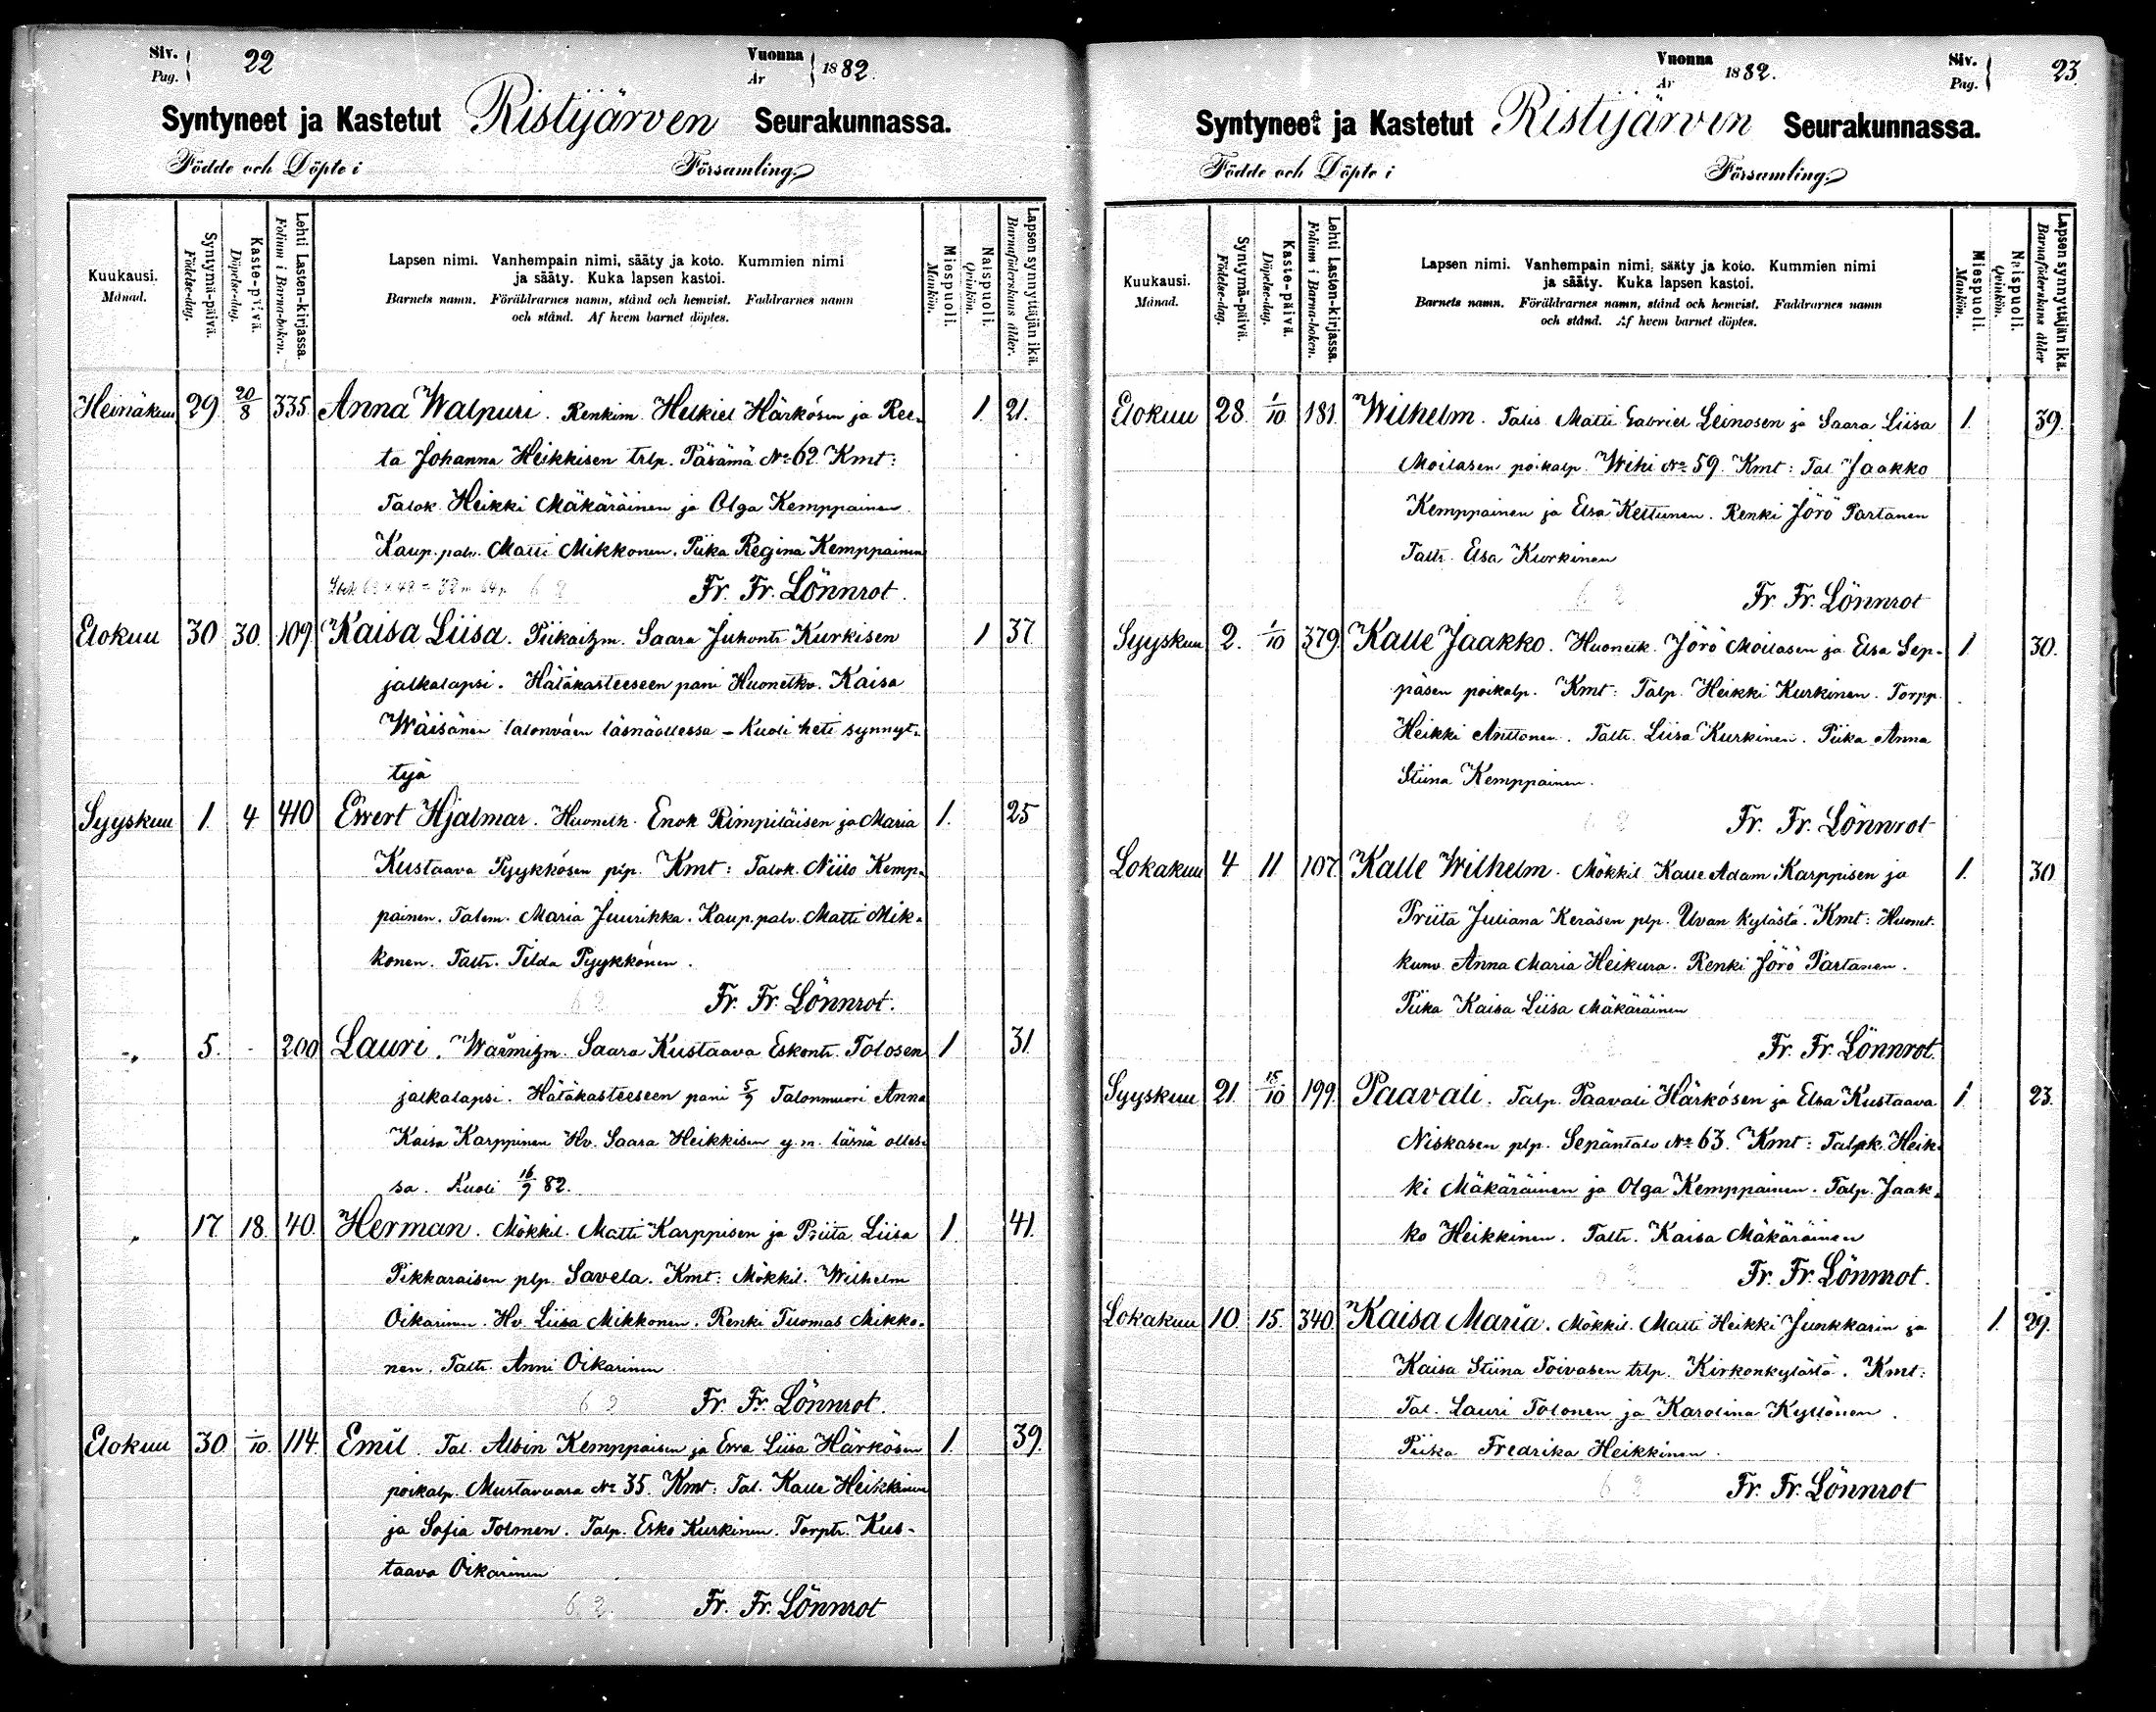 Siv. 22 Vuonna 1882.
Pag. År
Syntyneet ja Kastetut Ristijärven Seurakunnassa.
Födde och Döpte i Församling.
Kuukausi.
Månad.
Syntymä-päivä.
Födelse-dag.
Kaste-päivä.
Döpelse-dag.
Lehti Lasten-kirjassa.
Folium i Barna-boken.
Lapsen nimi. Vanhempain nimi, sääty ja koto. Kummien nimi
ja sääty. Kuka lapsen kastoi.
Barnets namn. Föräldrarnes namn, stånd och hemvist. Faddrarnes namn
och stånd. Af hvem barnet döptes.
Miespuoli.
Mankön.
Naispuoli.
Qvinkön.
Lapsen synnyttäjän ikä.
Barnaföderskans ålder.
Heinäkuu 29 20/8 335 Anna Walpuri. Renkim. Heskiel Härkösen ja Ree- 1. 21.
ta Johanna Heikkisen trlp. Päsämä No 62. Kmt:
Talok. Heikki Mäkäräinen ja Olga Kemppainen
Kaup. palv. Matti Mikkonen. Piika Regina Kemppainen
62
Fr. Fr. Lönnrot.
Elokuu 30 30. 109. Kaisa Liisa. Piikaizm. Saara Juhontr. Kurkisen 1 37.
jalkalapsi. Hätäkasteeseen pani Huonetkv. Kaisa
Wäisänen talonväen läsnäollessa - Kuoli heti synnyt-
tyä
Syyskuu 1. 4 410 Ewert Hjalmar. Huonetk. Enok Rimpiläisen ja Maria 1. 25
Kustaava Pyykkösen plp. Kmt: Talok. Niilo Kemp-
painen. Talem. Maria Juurikka. Kaup. palv. Matti Mik-
konen. Taltr. Tilda Pyykkönen.
62 Fr. Fr. Lönnrot.
-„ 5. - 200 Lauri. Waimizm. Saara Kustaava Eskontr. Tolosen 1 31.
jalkalapsi. Hätäkasteeseen pani 5/9 Talonmuori Anna
Kaisa Karppinen Hv. Saara Heikkisen y.m. läsnä olles-
sa. Kuoli 16/9 82.
„ 17. 18. 40. Herman. Mökkil. Matti Karppisen ja Priita Liisa 1. 41.
Pikkaraisen plp. Savela. Kmt: Mökkil. Wilhelm
Oikarinen. Hv. Liisa Mikkonen. Renki Tuomas Mikko-
nen. Taltr. Anni Oikarinen
62 Fr. Fr. Lönnrot.
Elokuu 30 1/10. 114. Emil. Tal. Albin Kemppaisen ja Ewa Liisa Härkösen 1. 39.
poikalp. Mustavaara No 35. Kmt: Tal. Kalle Heikkinen
ja Sofia Tolonen. Talp. Esko Kurkinen. Torptr. Kus-
taava Oikarinen
62. Fr. Fr. Lönnrot
Vuonna 1882. Siv. 23
År Pag.
Syntyneet ja Kastetut Ristijärven Seurakunnassa.
Födde och Döpte i Församling.
Kuukausi.
Månad.
Syntymä-päivä.
Födelse-dag.
Kaste-päivä.
Döpelse-dag.
Lehti Lasten-kirjassa.
Folium i Barna-boken.
Lapsen nimi. Vanhempain nimi, sääty ja koto. Kummien nimi
ja sääty. Kuka lapsen kastoi.
Barnets namn. Föräldrarnes namn, stånd och hemvist. Faddrarnes namn
och stånd. Af hvem barnet döptes.
Miespuoli.
Mankön.
Naispuoli.
Qvinkön.
Lapsen synnyttäjän ikä.
Barnaföderskans ålder
Elokuu 28. 1/10. 181. Wilhelm. Talis. Matti Gabriel Leinosen ja Saara Liisa 1. 39.
Moilasen poikalp. Wihi No 59. Kmt: Tal. Jaakko
Kemppainen ja Elsa Kettunen. Renki Jörö Partanen
Taltr. Elsa Kurkinen
62 Fr. Fr. Lönnrot
Syyskuu 2. 1/10 379. Kalle Jaakko. Huonetk. Jörö Moilasen ja Elsa Sep- 1. 30.
päsen poikalp. Kmt: Talp. Heikki Kurkinen. Torpp.
Heikki Anttonen. Taltr. Liisa Kurkinen. Piika Anna
Stiina Kemppainen.
62 Fr. Fr. Lönnrot
Lokakuu 4 11 107. Kalle Wilhelm. Mökkil. Kalle Adam Karppisen ja 1. 30
Priita Juliana Keräsen plp. Uvan kylästä. Kmt: Huonet.
kunv. Anna Maria Heikura. Renki Jörö Partanen.
Piika Kaisa Liisa Mäkäräinen
Fr. Fr. Lönnrot.
Syyskuu 21. 15/10 199. Paavali. Talp. Paavali Härkösen ja Elsa Kustaava 1. 23.
Niskasen plp. Sepäntalo No 63. Kmt: Talok. Heik-
ki Mäkäräinen ja Olga Kemppainen. Talp. Jaak-
ko Heikkinen. Taltr. Kaisa Mäkäräinen
62 Fr. Fr. Lönnrot.
Lokakuu 10. 15. 340. Kaisa Maria. Mökkil. Matti Heikki Junkkarin ja 1. 29.
Kaisa Stiina Toivasen trlp. Kirkonkylästä. Kmt:
Tal. Lauri Tolonen ja Karolina Kyllönen.
Piika Fredrika Heikkinen.
62 Fr. Fr. Lönnrot